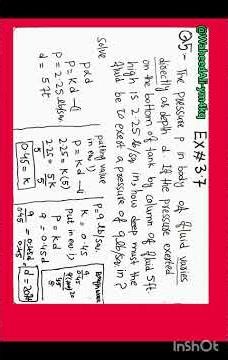 @WaheedAli-
EX#3.7
Q5:- The pressure P in body of fluid varies
directly as depth d. If the pressure exerted
on the bottom of tank by column of fluid 5ft
high is 2.25 lb/sq in, how deep must the
fluid be to exert a pressure of 9 lb/sq.in?
solve
P∝d
P = Kd -①
P = 2.25 lb/sq
d = 5ft
putting value
in eq 1)
P = Kd -①
2.25 = K(5)
2.25/5 = 5K/5
0.45 = K
P=9 lb/sq
K = 0.45
put in eq 1)
P = Kd
9 = 0.45d
9/0.45 = 0.45d/0.45
d = 20ft
Rough work
InShOt